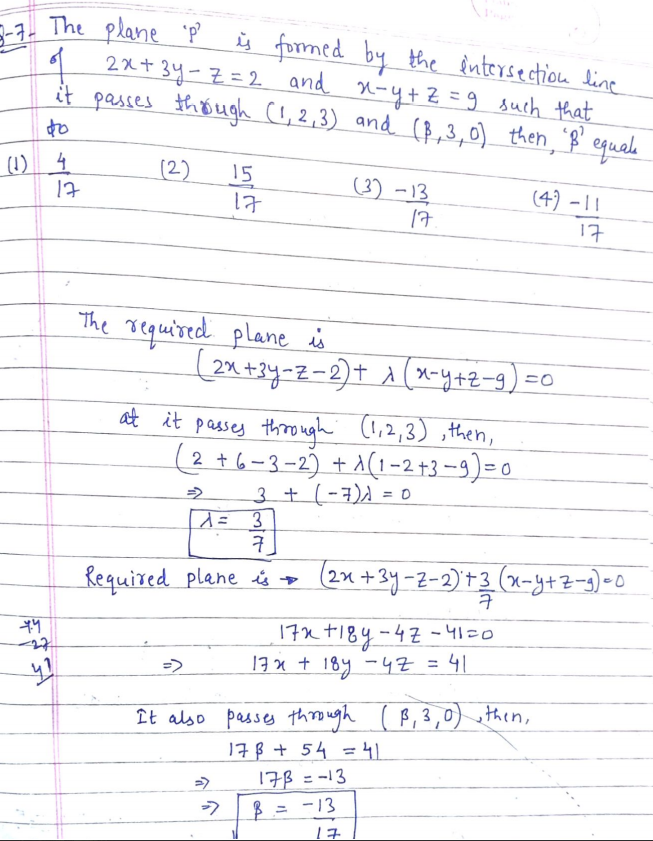 8-7- The plane 'P' is formed by the intersection line
of 2x + 3y - z = 2 and x - y + z = 9 such that
it passes through (1, 2, 3) and (β, 3, 0) then, 'β' equals
to
(1) 4/17 (2) 15/17 (3) -13/17 (4) -11/17
The required plane is
(2x + 3y - z - 2) + λ (x - y + z - 9) = 0
at it passes through (1, 2, 3), then,
(2 + 6 - 3 - 2) + λ(1 - 2 + 3 - 9) = 0
⇒ 3 + (-7)λ = 0
λ = 3/7
Required plane is → (2x + 3y - z - 2) + 3/7 (x - y + z - 9) = 0
17x + 18y - 4z - 41 = 0
-27
41
⇒ 17x + 18y - 4z = 41
It also passes through (β, 3, 0), then,
17β + 54 = 41
⇒ 17β = -13
⇒ β = -13/17